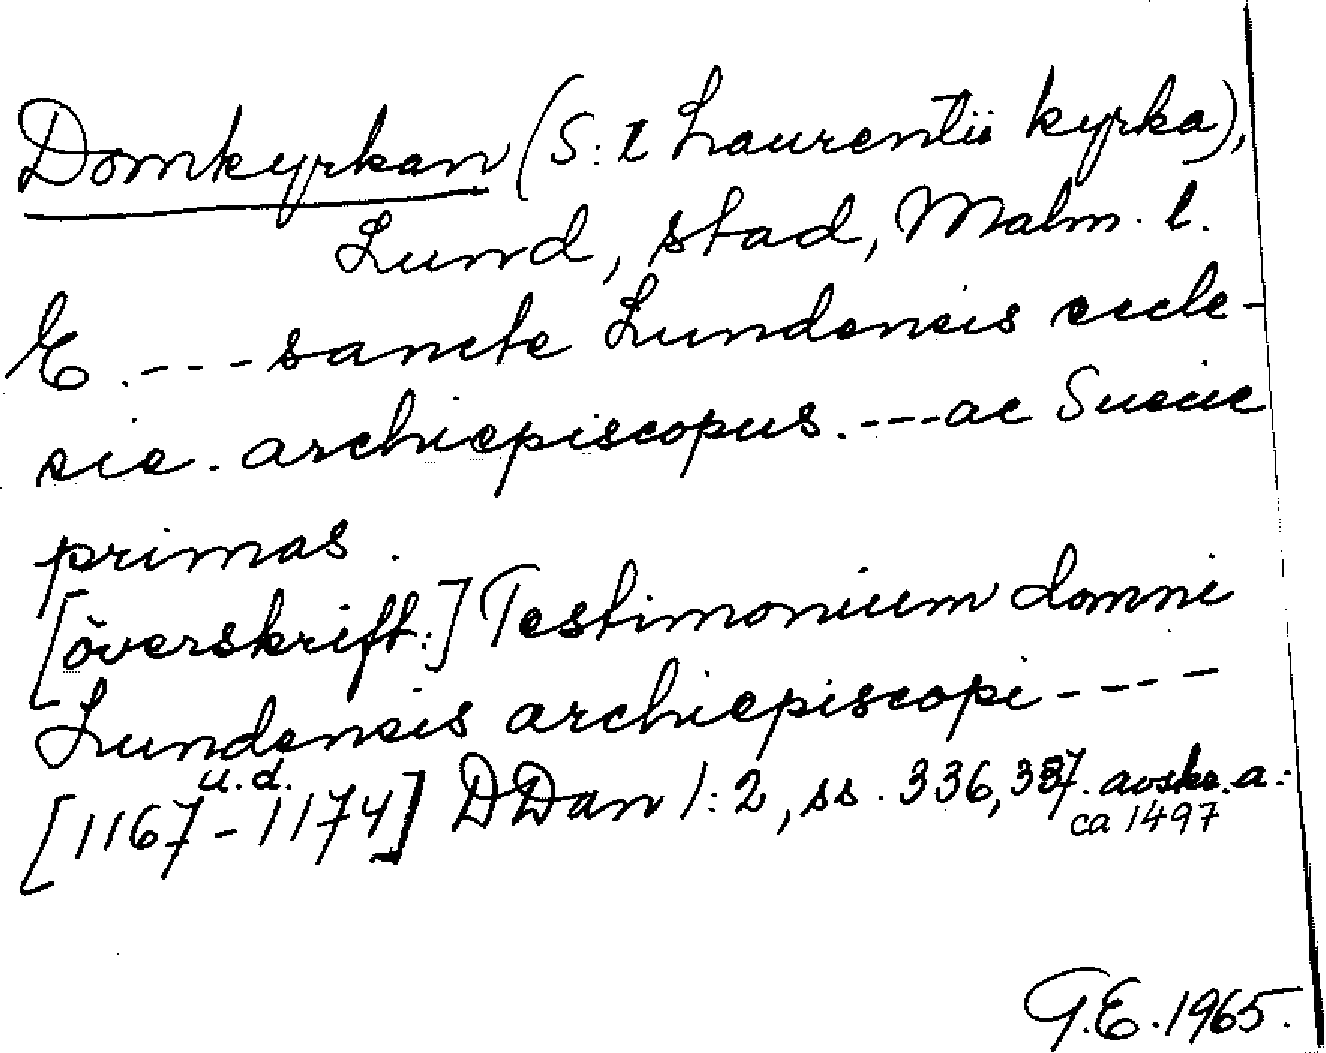 Domkyrkan (S:t Laurentii kyrka),
Lund, stad, Malm. l.
E. --- sancte Lundensis eccle-
sie. archiepiscopus. --- ac Suecie
primas.
[överskrift:] Testimonium domni
Lundensis archiepiscopi ----
u.d.
[1167-1174] DDan 1:2, ss. 336, 337. avskr. a.:
ca 1497
G.E. 1965.